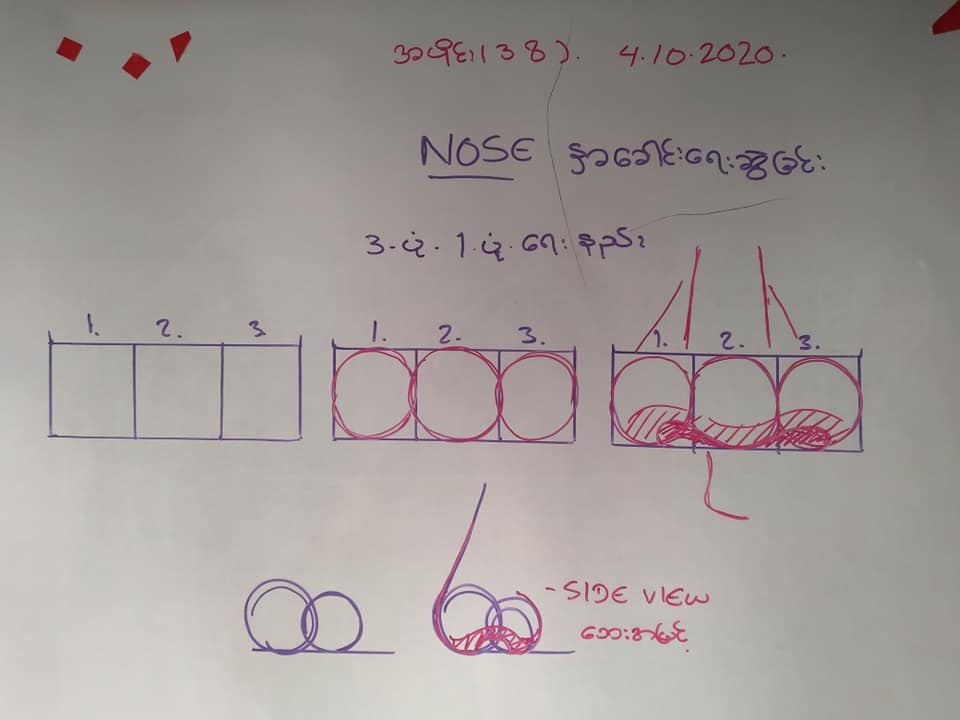 အပိုင်း(38). 4.10.2020.
NOSE နှာခေါင်းရေးဆွဲခြင်း
3.ပုံ.1.ပုံ.ရေးနည်း
1. 2. 3
1. 2. 3.
1. 2. 3.
-SIDE VIEW
ဘေးအမြင်